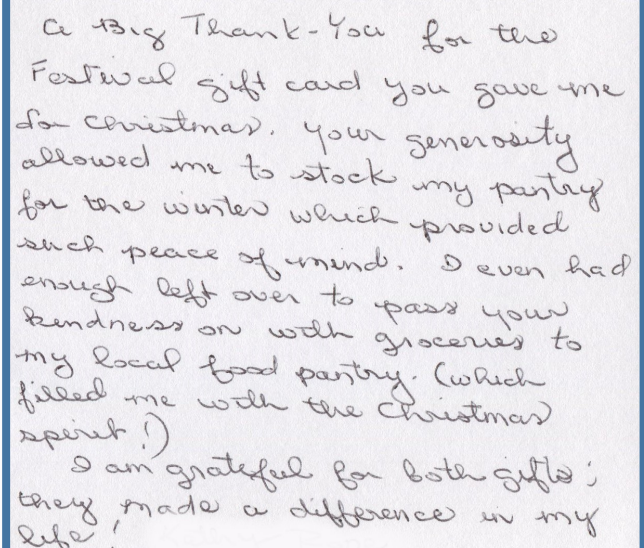 A Big Thank-You for the
Festival gift card you gave me
for Christmas. Your generosity
allowed me to stock my pantry
for the winter which provided
such peace of mind. I even had
enough left over to pass your
kindness on with groceries to
my local food pantry. (which
filled me with the Christmas
spirit!)
I am grateful for both gifts;
they made a difference in my
life!